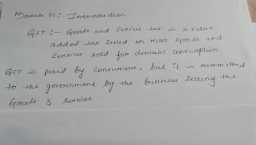 Module 1: Introduction
GST :- Goods and Service tax is a value
added tax levied on most goods and
services sold for domestic consumption
GST is paid by consumers, but it is remitted
to the government by the business selling the
goods & services